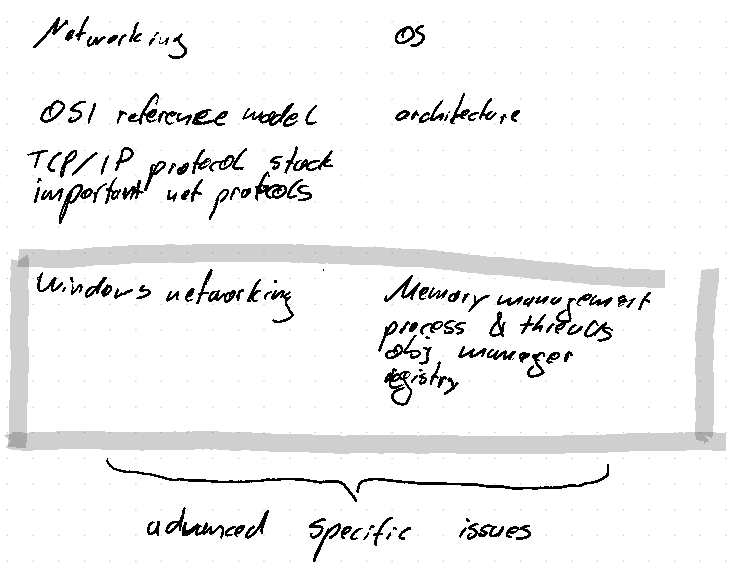 Networking OS
OSI reference model architecture
TCP/IP protocol stack
important net protocols
Windows networking Memory management
process & threads
obj manager
registry
advanced specific issues